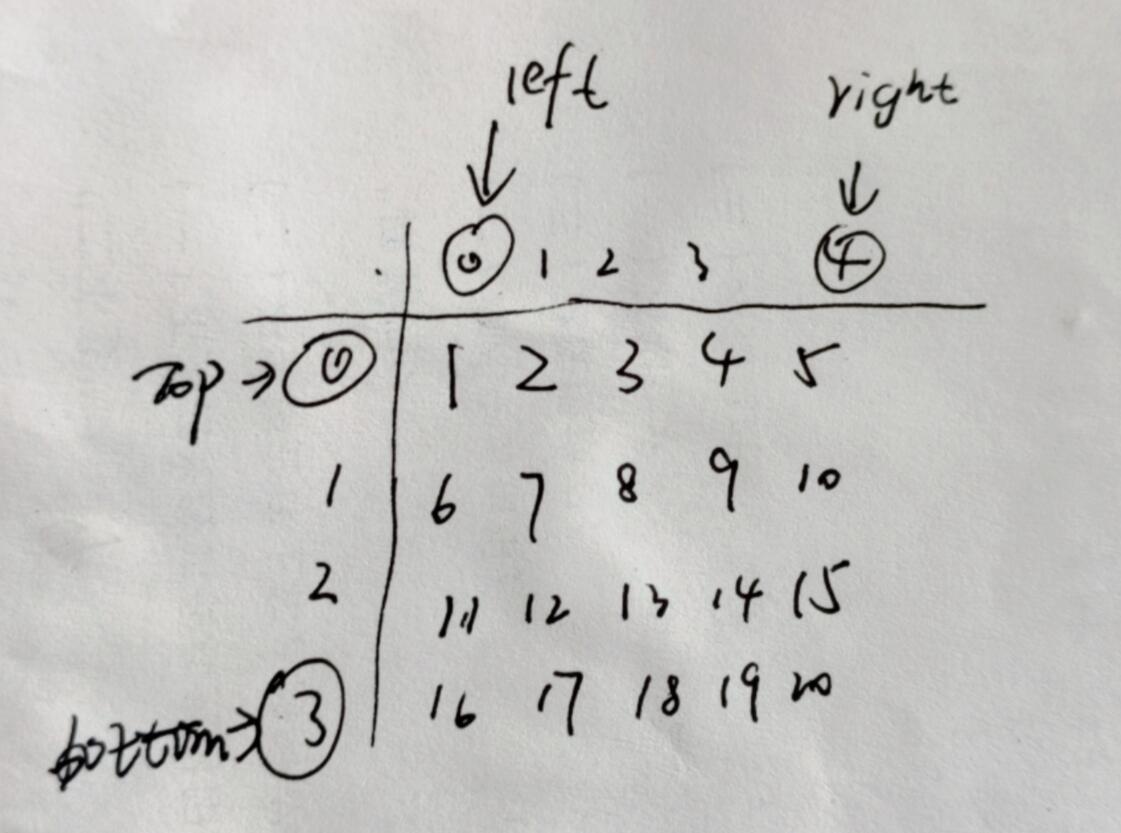 left right
0 1 2 3 4
Top → 0 1 2 3 4 5
1 6 7 8 9 10
2 11 12 13 14 15
bottom → 3 16 17 18 19 20